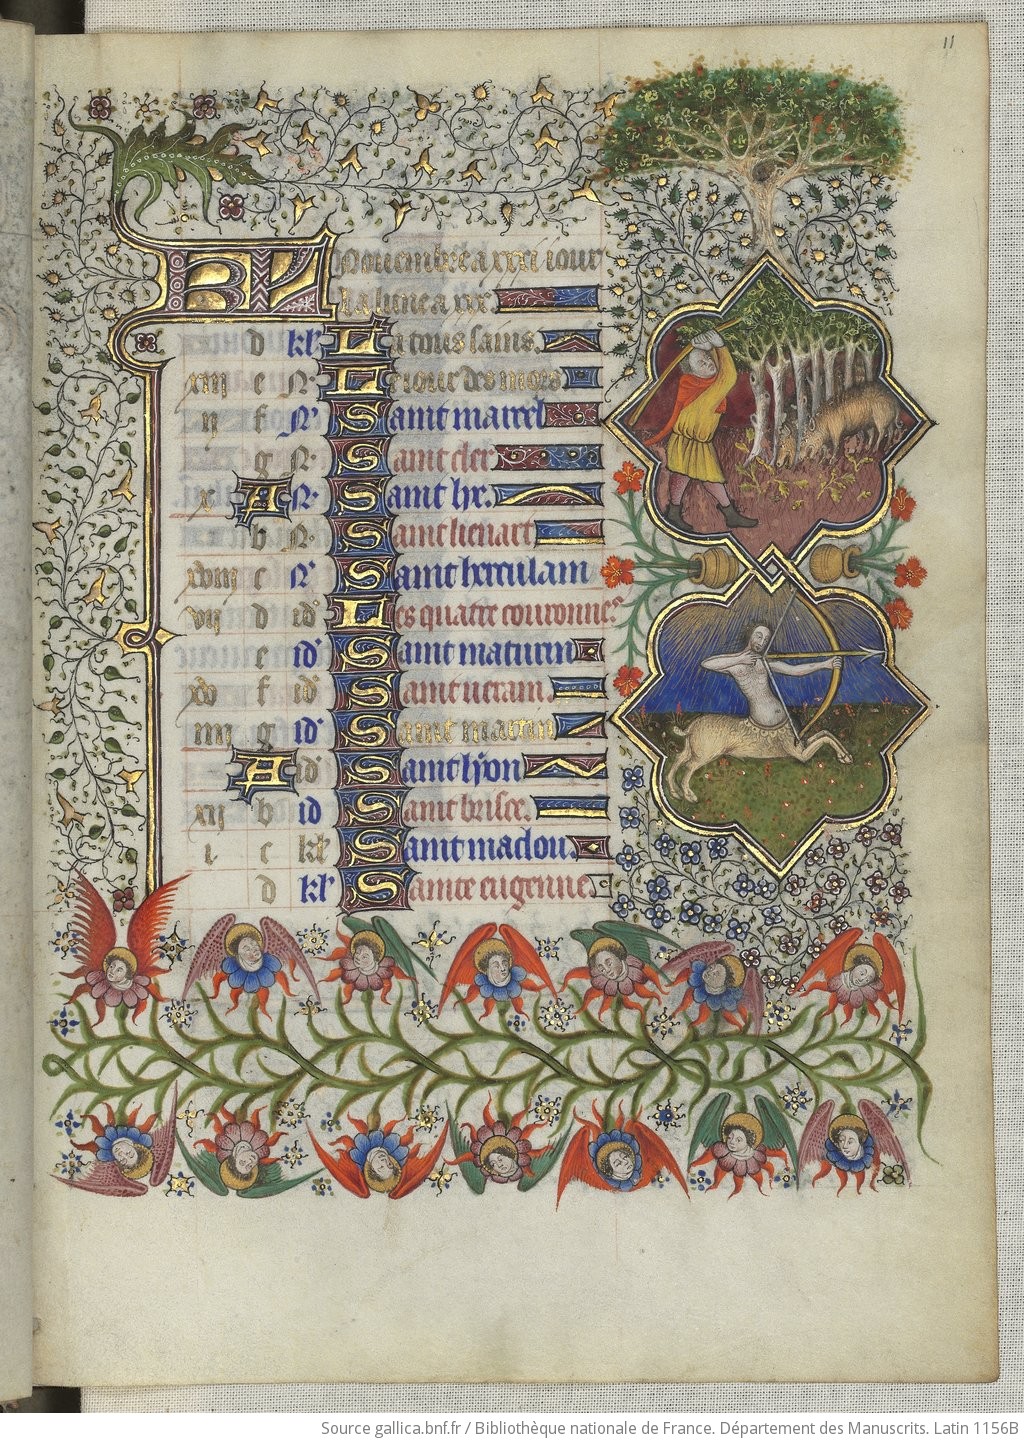 11
KL Nouembre a xxx iours
La lune a xix
d kl La tous sains.
xiii e N. Le iour des mors
ii f N. Saint marcel
g N. Saint cler
x A N. Saint lie.
b N. Saint lienart
xviii c N. Saint herculain
vii d id Les quatre couronnes
e id Saint maturin
xv f id Saint ueram.
iiii g id Saint martin
A id Saint lyon
xii b id Saint brisce.
i c kl Saint maclou.
d kl Sainte eugenne
Source gallica.bnf.fr / Bibliothèque nationale de France. Département des Manuscrits. Latin 1156B